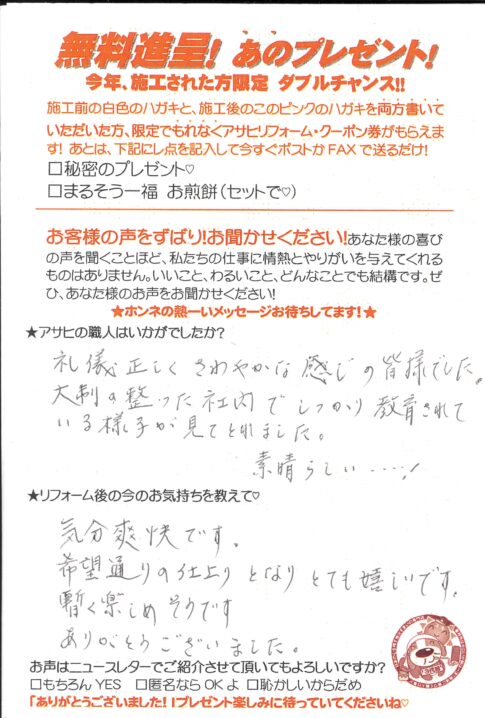 無料進呈! あのプレゼント!
今年、施工された方限定 ダブルチャンス!!
施工前の白色のハガキと、施工後のこのピンクのハガキを両方書いて
いただいた方、限定でもれなくアサヒリフォーム・クーポン券がもらえま
す! あとは、下記にレ点を記入して今すぐポストかFAXで送るだけ!
□秘密のプレゼント♡
□まるそう一福 お煎餅(セットで♡)
お客様の声をずばり!お聞かせください!あなた様の喜び
の声を聞くことほど、私たちの仕事に情熱とやりがいを与えてくれる
ものはありません。いいこと、わるいこと、どんなことでも結構です。ぜ
ひ、あなた様のお声をお聞かせください!
★ホンネの熱ーいメッセージお待ちしてます!★
★アサヒの職人はいかがでしたか?
礼儀正しくさわやかな感じの皆様でした。
大制の整った社内でしっかり教育されて
いる様子が見てとれました。
素晴らしい……!
★リフォーム後の今のお気持ちを教えて♡
気分爽快です。
希望通りの仕上りとなりとても嬉しいです。
暫く楽しめそうです
ありがとうございました。
お声はニュースレターでご紹介させて頂いてもよろしいですか?
□もちろんYES □匿名ならOKよ □恥かしいからだめ
「ありがとうございました!」プレゼント楽しみに待っていてくださいね♡